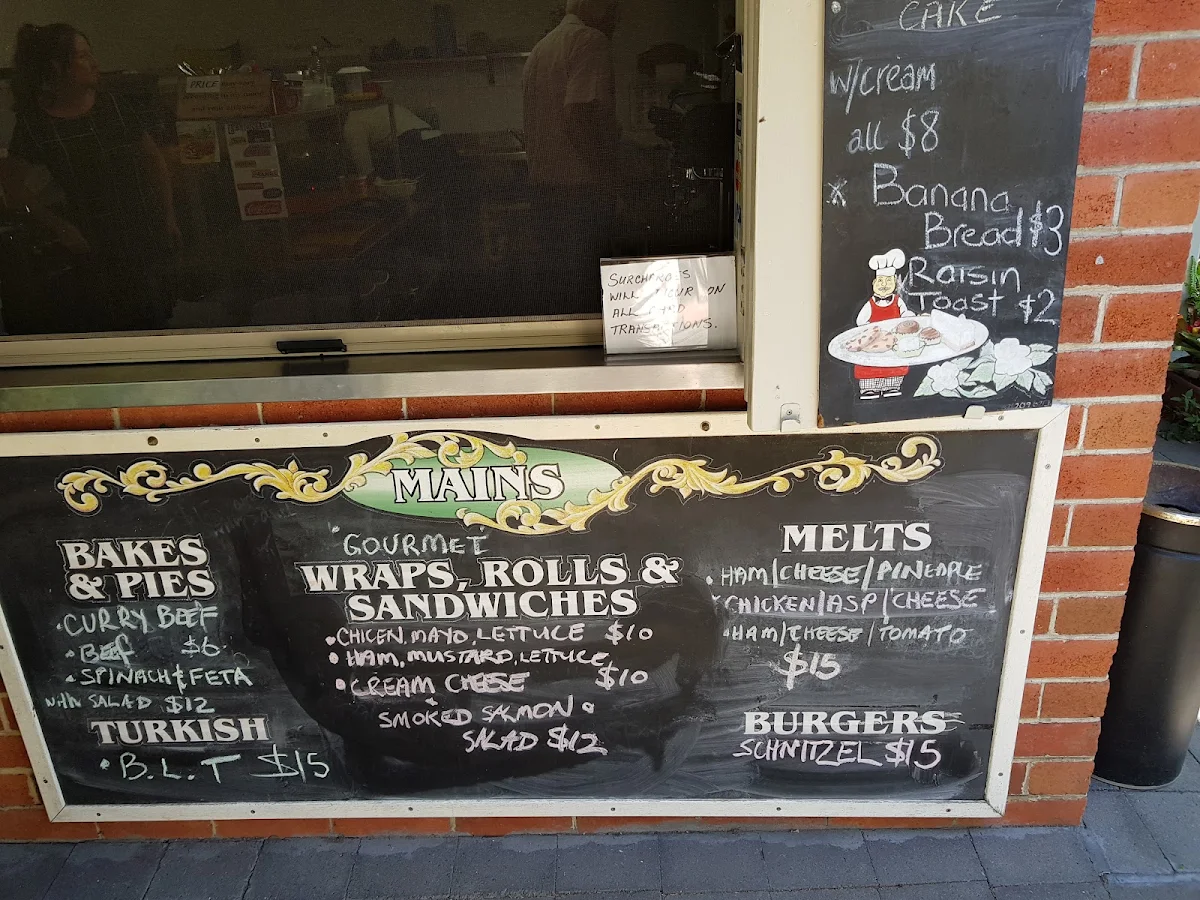 CAKE
w/cream
all $8
x Banana
Bread $3
x Raisin
Toast $2
SURCHARGES
WILL OCCUR ON
ALL CARD
TRANSACTIONS.
PRICE
MAINS
BAKES
& PIES
•CURRY BEEF
•BEEF $6.
•SPINACH & FETA
WITH SALAD $12
TURKISH
•B.L.T $15
GOURMET
WRAPS, ROLLS &
SANDWICHES
•CHICEN, MAYO, LETTUCE $10
•HAM, MUSTARD, LETTUCE
$10
•CREAM CHEESE
SMOKED SALMON &
SALAD $12
MELTS
•HAM/CHEESE/PINEAPLE
•CHICKEN/ASP/CHEESE
•HAM/CHEESE/TOMATO
$15
BURGERS
SCHNITZEL $15